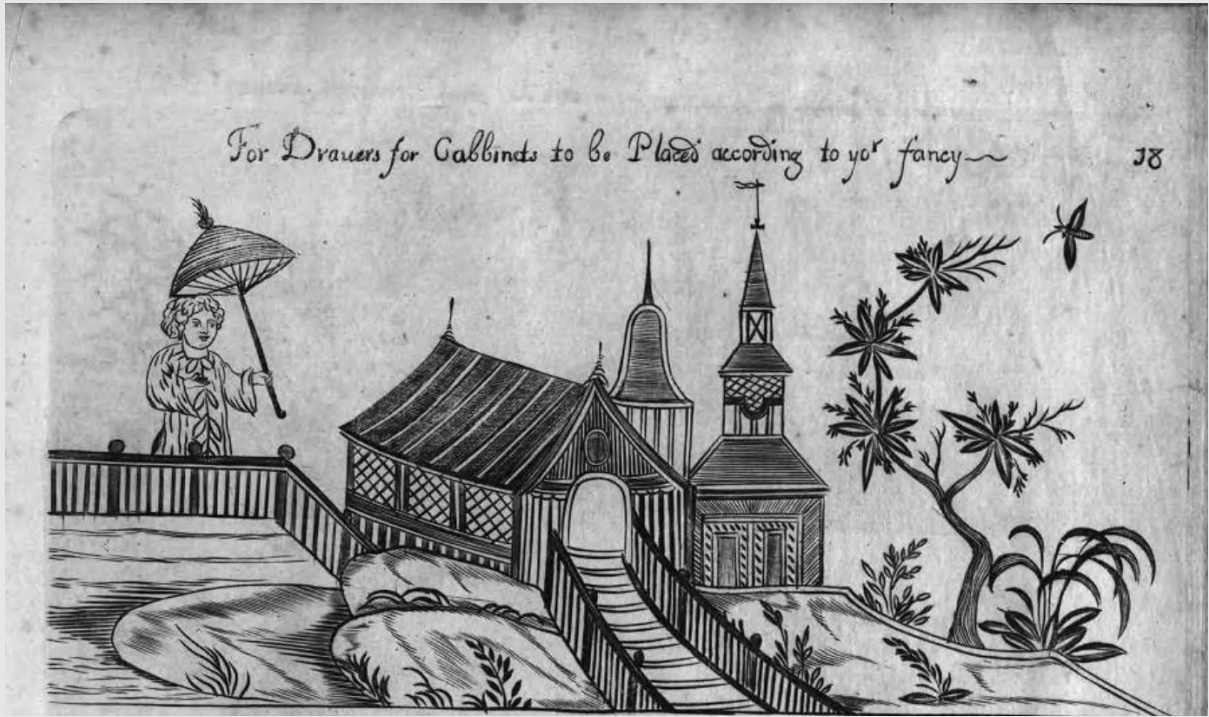 For Drauers for Cabbinets to be Placed according to yoʳ fancy 18